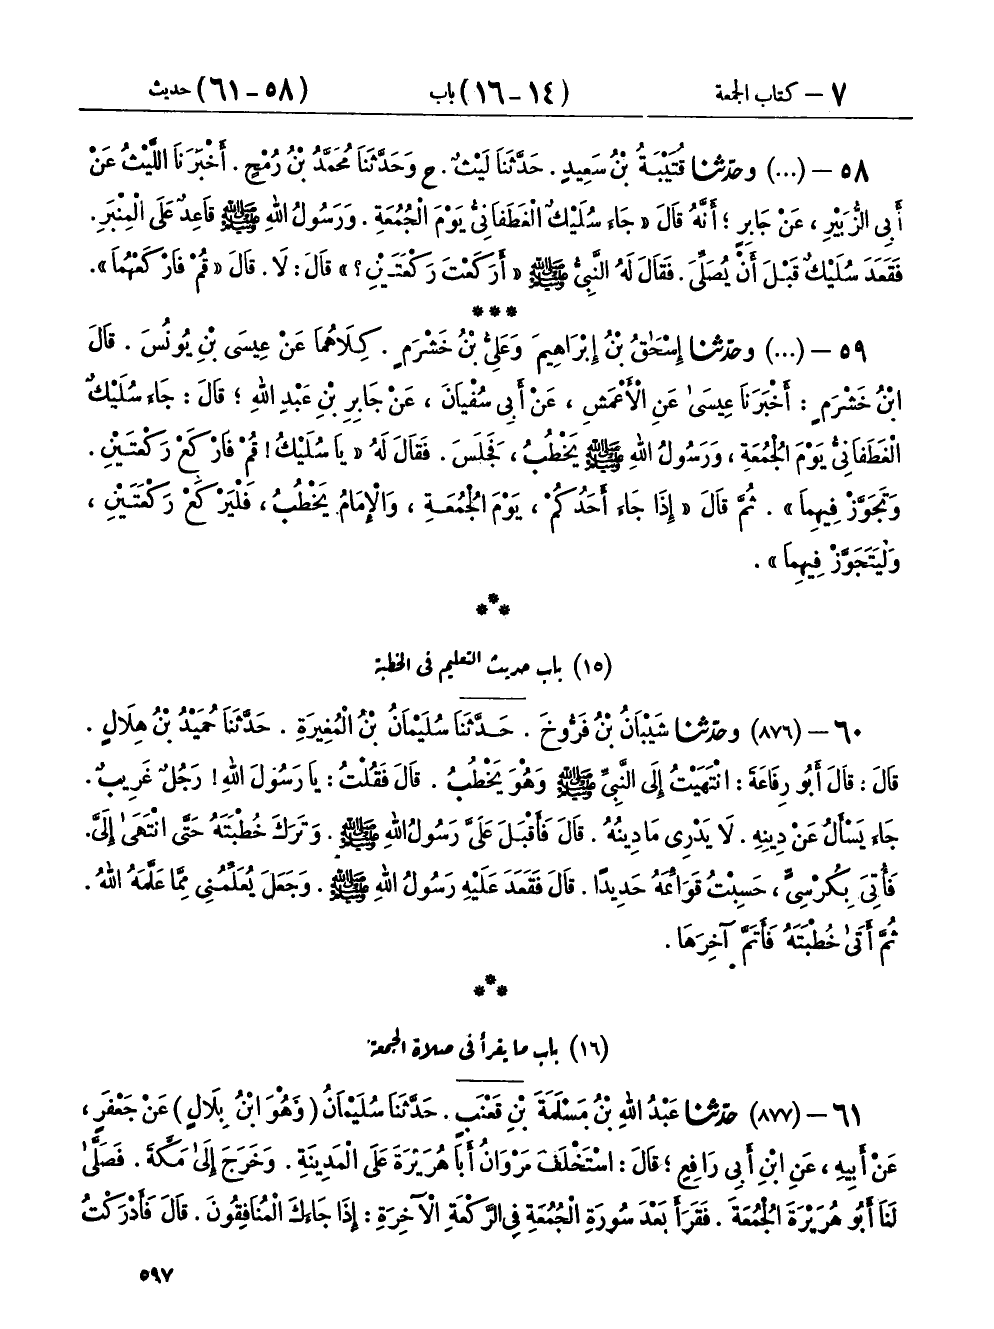 ٧ – كتاب الجمعة (١٤-١٦) باب (٥٨-٦١) حديث
٥٨ – (...) وحَدَّثَنَا قُتَيْبَةُ بْنُ سَعِيدٍ. حَدَّثَنَا لَيْثٌ. ح وَحَدَّثَنَا مُحَمَّدُ بْنُ رُمْحٍ. أَخْبَرَنَا اللَّيْثُ عَنْ
أَبِي الزُّبَيْرِ، عَنْ جَابِرٍ؛ أَنَّهُ قَالَ «جَاءَ سُلَيْكٌ الْغَطَفَانِيُّ يَوْمَ الْجُمُعَةِ. وَرَسُولُ اللهِ ﷺ قَاعِدٌ عَلَى الْمِنْبَرِ.
فَقَعَدَ سُلَيْكٌ قَبْلَ أَنْ يُصَلِّيَ. فَقَالَ لَهُ النَّبِيُّ ﷺ «أَرَكَعْتَ رَكْعَتَيْنِ؟» قَالَ: لَا. قَالَ «قُمْ فَارْكَعْهُمَا».
***
٥٩ – (...) وحَدَّثَنَا إِسْحٰقُ بْنُ إِبْرَاهِيمَ وَعَلِيُّ بْنُ خَشْرَمٍ. كِلَاهُمَا عَنْ عِيسَى بْنِ يُونُسَ. قَالَ
ابْنُ خَشْرَمٍ: أَخْبَرَنَا عِيسَىٰ عَنِ الْأَعْمَشِ، عَنْ أَبِي سُفْيَانَ، عَنْ جَابِرِ بْنِ عَبْدِ اللهِ؛ قَالَ: جَاءَ سُلَيْكٌ
الْغَطَفَانِيُّ يَوْمَ الْجُمُعَةِ، وَرَسُولُ اللهِ ﷺ يَخْطُبُ، فَجَلَسَ. فَقَالَ لَهُ «يَا سُلَيْكُ! قُمْ فَارْكَعْ رَكْعَتَيْنِ.
وَتَجَوَّزْ فِيهِمَا». ثُمَّ قَالَ «إِذَا جَاءَ أَحَدُكُمْ، يَوْمَ الْجُمُعَةِ، وَالْإِمَامُ يَخْطُبُ، فَلْيَرْكَعْ رَكْعَتَيْنِ،
وَلْيَتَجَوَّزْ فِيهِمَا».
***
(١٥) باب حديث التعليم فى الخطبة
٦٠ – (٨٧٦) وحَدَّثَنَا شَيْبَانُ بْنُ فَرُّوخَ. حَدَّثَنَا سُلَيْمَانُ بْنُ الْمُغِيرَةِ. حَدَّثَنَا حُمَيْدُ بْنُ هِلَالٍ.
قَالَ: قَالَ أَبُو رِفَاعَةَ: انْتَهَيْتُ إِلَى النَّبِيِّ ﷺ وَهُوَ يَخْطُبُ. قَالَ فَقُلْتُ: يَا رَسُولَ اللهِ! رَجُلٌ غَرِيبٌ.
جَاءَ يَسْأَلُ عَنْ دِينِهِ. لَا يَدْرِي مَا دِينُهُ. قَالَ فَأَقْبَلَ عَلَيَّ رَسُولُ اللهِ ﷺ. وَتَرَكَ خُطْبَتَهُ حَتَّى انْتَهَىٰ إِلَيَّ.
فَأُتِيَ بِكُرْسِيٍّ، حَسِبْتُ قَوَائِمَهُ حَدِيدًا. قَالَ فَقَعَدَ عَلَيْهِ رَسُولُ اللهِ ﷺ. وَجَعَلَ يُعَلِّمُنِي مِمَّا عَلَّمَهُ اللهُ.
ثُمَّ أَتَىٰ خُطْبَتَهُ فَأَتَمَّ آخِرَهَا.
***
(١٦) باب ما يقرأ فى صلاة الجمعة
٦١ – (٨٧٧) حَدَّثَنَا عَبْدُ اللهِ بْنُ مَسْلَمَةَ بْنِ قَعْنَبٍ. حَدَّثَنَا سُلَيْمَانُ (وَهُوَ ابْنُ بِلَالٍ) عَنْ جَعْفَرٍ،
عَنْ أَبِيهِ، عَنِ ابْنِ أَبِي رَافِعٍ؛ قَالَ: اسْتَخْلَفَ مَرْوَانُ أَبَا هُرَيْرَةَ عَلَى الْمَدِينَةِ. وَخَرَجَ إِلَىٰ مَكَّةَ. فَصَلَّىٰ
لَنَا أَبُو هُرَيْرَةَ الْجُمُعَةَ. فَقَرَأَ بَعْدَ سُورَةِ الْجُمُعَةِ فِي الرَّكْعَةِ الْآخِرَةِ: إِذَا جَاءَكَ الْمُنَافِقُونَ. قَالَ فَأَدْرَكْتُ
٥٩٧